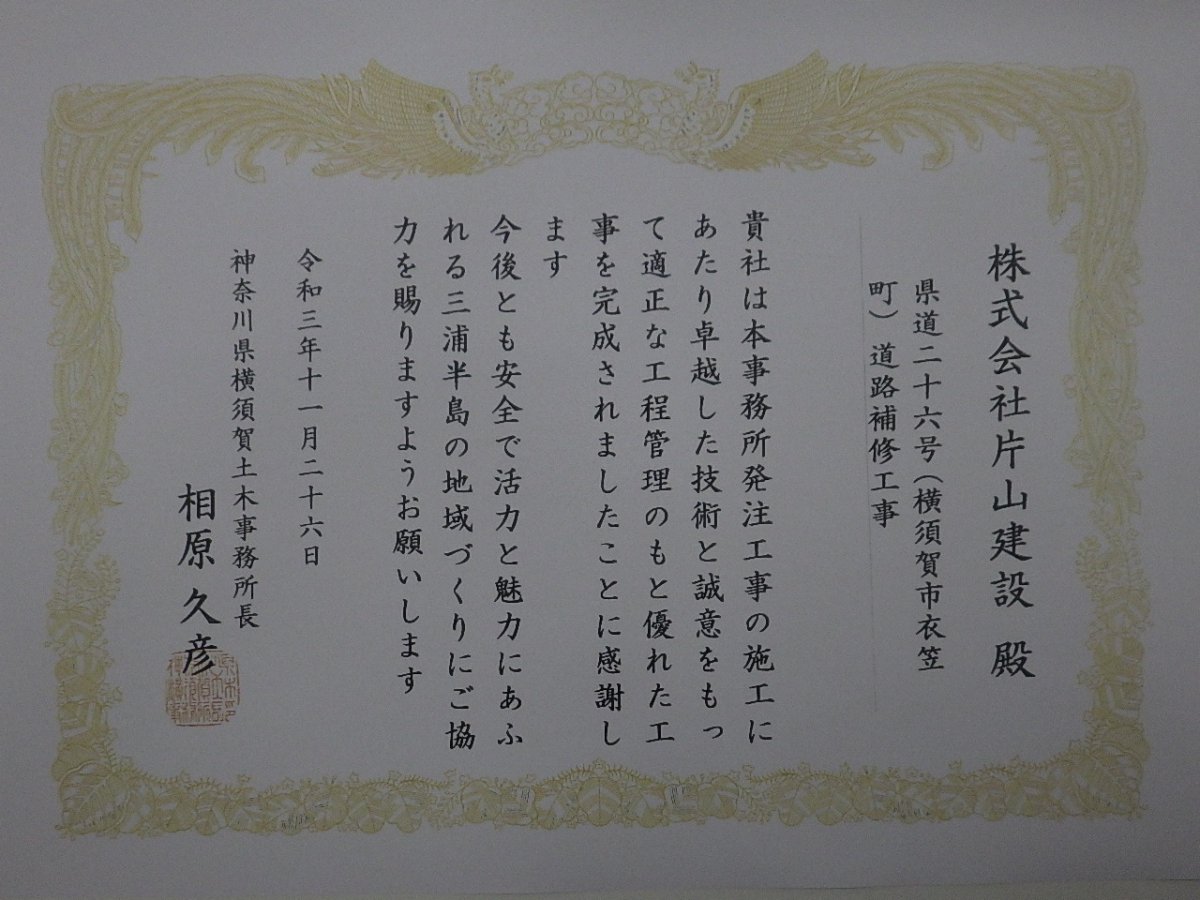 株式会社片山建設 殿
県道二十六号（横須賀市衣笠
町）道路補修工事
貴社は本事務所発注工事の施工に
あたり卓越した技術と誠意をもっ
て適正な工程管理のもと優れた工
事を完成されましたことに感謝し
ます
今後とも安全で活力と魅力にあふ
れる三浦半島の地域づくりにご協
力を賜りますようお願いします
令和三年十一月二十六日
神奈川県横須賀土木事務所長
相原久彦